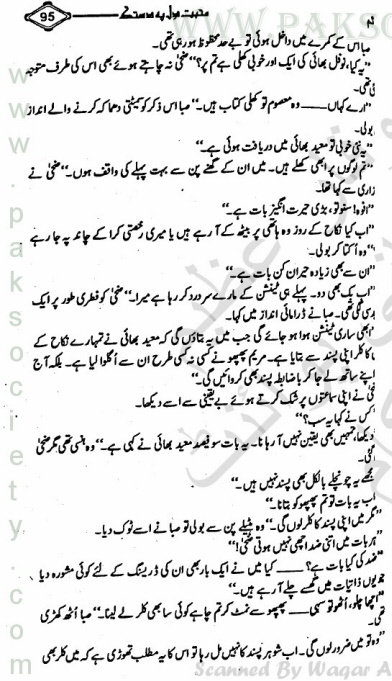 95
محبت دل پہ دستک
WWW.PAKSO
www.paksociety.com
صبا اس کے کمرے میں داخل ہوئی تو بے حد محظوظ ہو رہی تھی۔
”یہ کیا، نوفل بھائی کی ایک اور خوبی کھلی ہے تم پر؟“ ضحیٰ نہ چاہتے ہوئے بھی اس کی طرف متوجہ
”ارے کہاں ـــــ وہ معصوم تو کھلی کتاب ہیں۔“ صبا اس ذکر کو سمیٹتی دھماکہ کرنے والے انداز
بولی۔
”یہ نئی خوبی تو معید بھائی میں دریافت ہوئی ہے۔“
”تم لوگوں پر ابھی کھلے ہیں۔ میں ان کے گھنے پن سے بہت پہلے کی واقف ہوں۔“ ضحیٰ نے
زاری سے کہا تھا۔
”افوہ! سنو تو، بڑی حیرت انگیز بات ہے۔“
”اب کیا نکاح کے روز وہ ہاتھی پر بیٹھ کے آ رہے ہیں یا میری رخصتی کرا کے چاند پہ جا رہے
وہ اکتا کر بولی۔
”ان سے بھی زیادہ حیران کن بات ہے۔“
”اب بک بھی دو۔ پہلے ہی ٹینشن کے مارے سر درد کر رہا ہے میرا۔“ ضحیٰ کو فطری طور پر ایک
سی لگی تھی۔ صبا نے ڈرامائی انداز میں کہا۔
”ابھی ساری ٹینشن ہوا ہو جائے گی جب میں یہ بتاؤں گی کہ معید بھائی نے تمہارے نکاح کے
کا کلر اپنی پسند سے بتایا ہے۔ مریم پھپھو نے کسی نہ کسی طرح ان سے اگلوا لیا ہے۔ بلکہ آج
اپنے ساتھ لے جا کر باضابطہ پسند بھی کروائیں گی۔“
نے اپنی سماعتوں پر شک کرتے ہوئے بے یقینی سے اسے دیکھا۔
”کس نے کہا یہ سب؟“
”دیکھا، تمہیں بھی یقین نہیں آ رہا نا۔ یہ بات سو فیصد معید بھائی نے کہی ہے۔“ وہ ہنسی تھی مگر ضحیٰ
گئی۔
”مجھے یہ چونچلے بالکل بھی پسند نہیں ہیں۔“
”اب یہ بات تو تم پھپھو کو بتانا۔“
”مگر میں اپنی پسند کا کلر لوں گی۔“ وہ ضدیلے پن سے بولی تو صبا نے اسے ٹوک دیا۔
”ہر بات میں اتنی ضد اچھی نہیں ہوتی ضحیٰ!“
”ضد کی کیا بات ہے؟ ـــــ کیا میں نے ایک بار بھی ان کی ڈریسنگ کے لئے کوئی مشورہ دیا
جو یوں ذاتیات میں گھسے چلے آ رہے ہیں۔“
”اچھا چلو، اٹھو تو سہی ـــــ پھپھو سے نمٹ کر تم چاہے کوئی سا بھی کلر لے لینا۔“ صبا اٹھ کھڑی
تھی۔
”وہ تو میں ضرور لوں گی۔ اب شوہر پسند کا نہیں مل رہا تو اس کا یہ مطلب تھوڑی ہے کہ میں کلر بھی
Scanned By Waqar A